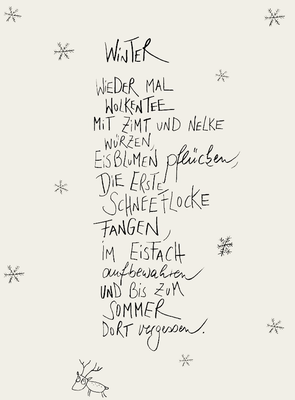 WiNTER
WiEDER MAL
WOLKENTEE
MiT ZiMT UND NELKE
WÜRZEN,
EiSBLUMEN pflücken,
DiE ERSTE
SCHNEEFLOCKE
FANGEN,
iM EiSFACH
aufbewahren
UND BiS ZUM
SOMMER
DORT vergessen.